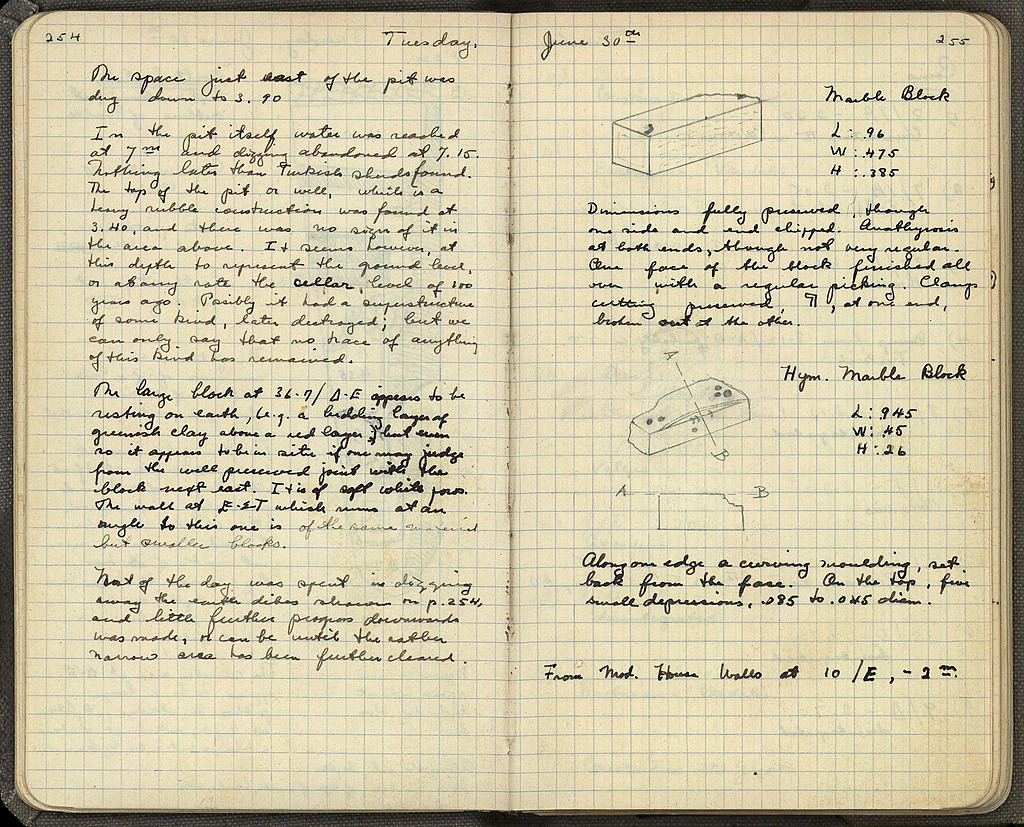 254
Tuesday,
The space just east of the pit was
dug down to 3.90
In the pit itself water was reached
at 7m and digging abandoned at 7.15.
Nothing later than Turkish sherds found.
The top of the pit or well, which is a
heavy rubble construction was found at
3.40, and there was no sign of it in
the area above. It seems however, at
this depth to represent the ground level,
or at any rate the cellar, level of 100
years ago. Possibly it had a superstructure
of some kind, later destroyed; but we
can only say that no trace of anything
of this kind has remained.
The large block at 36-7/Δ-E appears to be
resting on earth, (e.g. a bedding layer of
greenish clay above a red layer), but even
so it appears to be in situ if one may judge
from the well preserved joint with the
block next east. It is of soft white poros.
The wall at E-ΣT which runs at an
angle to this one is of the same material
but smaller blocks.
Most of the day was spent in digging
away the earth dikes shown on p. 254,
and little further progress downwards
was made, or can be until the rather
narrow area has been further cleared.
June 30th
255
Marble Block
L: .96
W: .475
H: .385
Dimensions fully preserved, though
one side and end chipped. Anathyrosis
at both ends, though not very regular.
One face of the block finished all
over with a regular picking. Clamp
cutting preserved, at one end,
broken out at the other.
Hym. Marble Block
L: .945
W: .45
H: .26
A
B
A B
Along one edge a curving moulding, set
back from the face. On the top, five
small depressions, .085 to .045 diam.
From Mod. House Walls at 10/E, -2m.